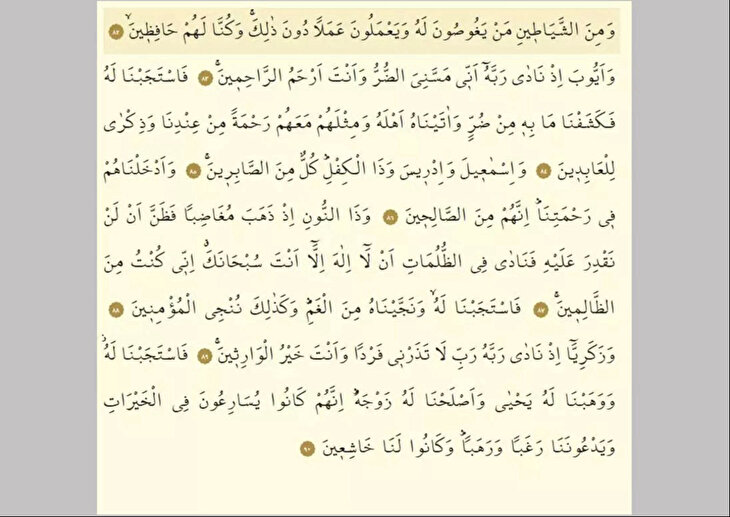 وَمِنَ الشَّيَاطٖينِ مَنْ يَغُوصُونَ لَهُ وَيَعْمَلُونَ عَمَلًا دُونَ ذٰلِكَۚ وَكُنَّا لَهُمْ حَافِظٖينَۙ ٨٢
وَاَيُّوبَ اِذْ نَادٰى رَبَّهُٓ اَنّٖي مَسَّنِيَ الضُّرُّ وَاَنْتَ اَرْحَمُ الرَّاحِمٖينَۚ ٨٣ فَاسْتَجَبْنَا لَهُ
فَكَشَفْنَا مَا بِهٖ مِنْ ضُرٍّ وَاٰتَيْنَاهُ اَهْلَهُ وَمِثْلَهُمْ مَعَهُمْ رَحْمَةً مِنْ عِنْدِنَا وَذِكْرٰى
لِلْعَابِدٖينَ ٨٤ وَاِسْمٰعٖيلَ وَاِدْرٖيسَ وَذَا الْكِفْلِۜ كُلٌّ مِنَ الصَّابِرٖينَۚ ٨٥ وَاَدْخَلْنَاهُمْ
فٖي رَحْمَتِنَاۜ اِنَّهُمْ مِنَ الصَّالِحٖينَ ٨٦ وَذَا النُّونِ اِذْ ذَهَبَ مُغَاضِبًا فَظَنَّ اَنْ لَنْ
نَقْدِرَ عَلَيْهِ فَنَادٰى فِي الظُّلُمَاتِ اَنْ لَٓا اِلٰهَ اِلَّٓا اَنْتَ سُبْحَانَكَۗ اِنّٖي كُنْتُ مِنَ
الظَّالِمٖينَۚ ٨٧ فَاسْتَجَبْنَا لَهُۙ وَنَجَّيْنَاهُ مِنَ الْغَمِّۜ وَكَذٰلِكَ نُنْجِي الْمُؤْمِنٖينَ ٨٨
وَزَكَرِيَّٓا اِذْ نَادٰى رَبَّهُ رَبِّ لَا تَذَرْنٖي فَرْدًا وَاَنْتَ خَيْرُ الْوَارِثٖينَۚ ٨٩ فَاسْتَجَبْنَا لَهُۘ
وَوَهَبْنَا لَهُ يَحْيٰى وَاَصْلَحْنَا لَهُ زَوْجَهُۜ اِنَّهُمْ كَانُوا يُسَارِعُونَ فِي الْخَيْرَاتِ
وَيَدْعُونَنَا رَغَبًا وَرَهَبًاۜ وَكَانُوا لَنَا خَاشِعٖينَ ٩٠